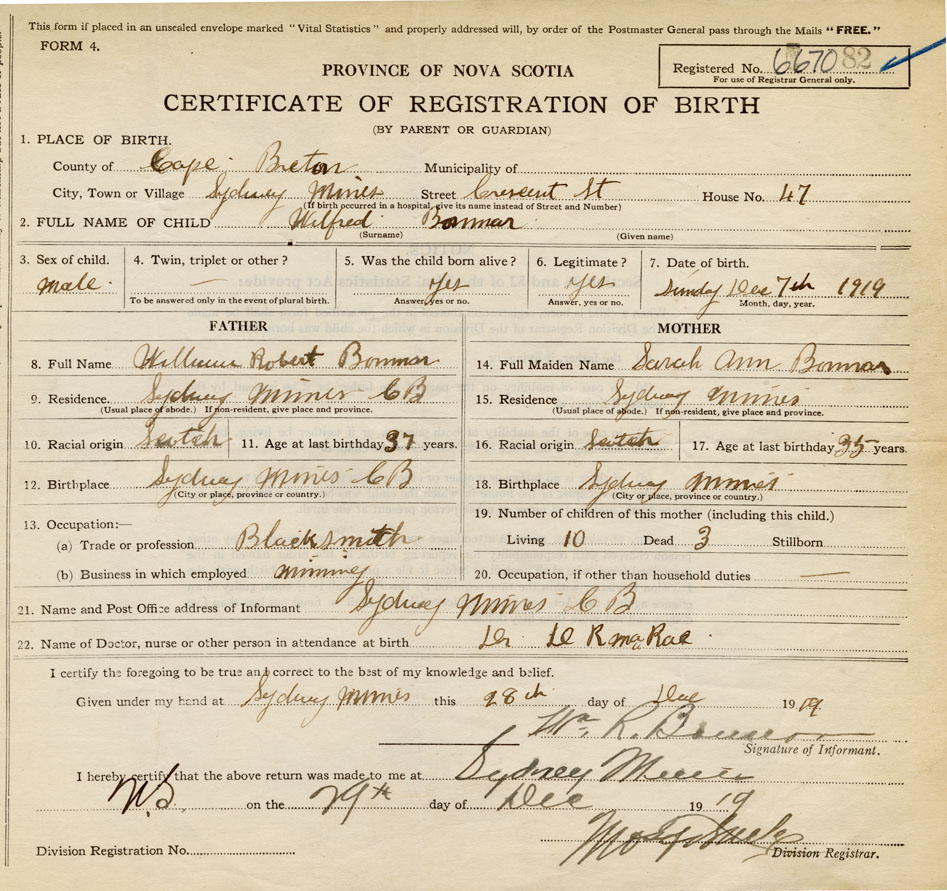 This form if placed in an unsealed envelope marked "Vital Statistics" and properly addressed will, by order of the Postmaster General pass through the Mails "FREE."
FORM 4.
Registered No. 667082
For use of Registrar General only.
PROVINCE OF NOVA SCOTIA
CERTIFICATE OF REGISTRATION OF BIRTH
(BY PARENT OR GUARDIAN)
1. PLACE OF BIRTH.
County of Cape Breton Municipality of
City, Town or Village Sydney Mines Street Crescent St House No. 47
(If birth occurred in a hospital, give its name instead of Street and Number)
2. FULL NAME OF CHILD Wilfred Bonnar
(Surname) (Given name)
3. Sex of child. 4. Twin, triplet or other? 5. Was the child born alive? 6. Legitimate? 7. Date of birth.
male. — Yes Yes Sunday Dec 7th 1919
To be answered only in the event of plural birth. Answer, yes or no. Answer, yes or no. Month, day, year.
FATHER MOTHER
8. Full Name William Robert Bonnar 14. Full Maiden Name Sarah Ann Bonnar
9. Residence. Sydney Mines CB 15. Residence Sydney Mines
(Usual place of abode.) If non-resident, give place and province. (Usual place of abode.) If non-resident, give place and province.
10. Racial origin Scotch 11. Age at last birthday 37 years. 16. Racial origin Scotch 17. Age at last birthday 35 years.
12. Birthplace Sydney Mines CB 18. Birthplace Sydney Mines
(City or place, province or country.) (City or place, province or country.)
13. Occupation:— 19. Number of children of this mother (including this child.)
(a) Trade or profession Blacksmith Living 10 Dead 3 Stillborn
(b) Business in which employed minning 20. Occupation, if other than household duties —
21. Name and Post Office address of Informant Sydney Mines CB
22. Name of Doctor, nurse or other person in attendance at birth Dr. McRae
I certify the foregoing to be true and correct to the best of my knowledge and belief.
Given under my hand at Sydney Mines this 28th day of Dec 1919
Wm R. Bonnar
Signature of Informant.
I hereby certify that the above return was made to me at Sydney Mines
N.S. on the 29th day of Dec 1919
Division Registration No. Division Registrar.